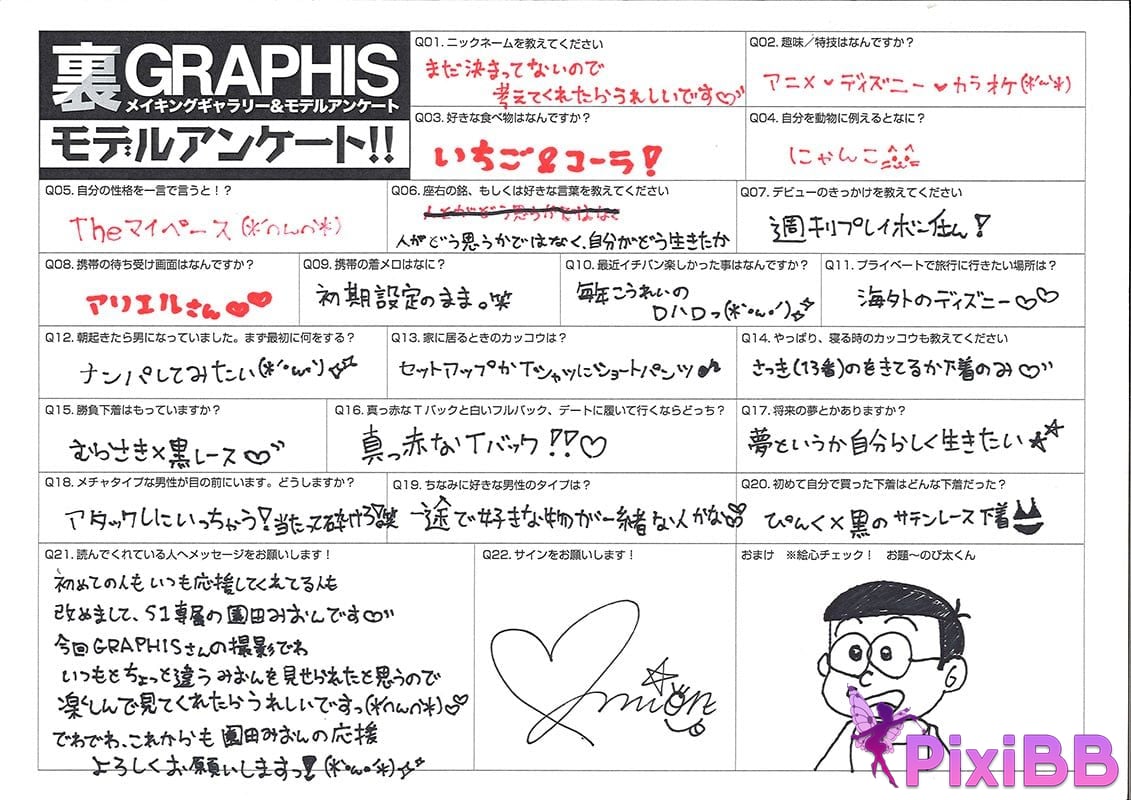 裏GRAPHIS
メイキングギャラリー&モデルアンケート
モデルアンケート!!
Q01. ニックネームを教えてください
まだ決まってないので
考えてくれたらうれしいです♡
Q02. 趣味／特技はなんですか？
アニメ♥ディズニー♥カラオケ(*´ω`*)
Q03. 好きな食べ物はなんですか？
いちご&コーラ!
Q04. 自分を動物に例えるとなに？
にゃんこ
Q05. 自分の性格を一言で言うと！？
Theマイペース(*´ω`*)
Q06. 座右の銘、もしくは好きな言葉を教えてください
人がどう思うかではなく
人がどう思うかではなく、自分がどう生きたか
Q07. デビューのきっかけを教えてください
週刊プレイボーイさん!
Q08. 携帯の待ち受け画面はなんですか？
アリエルさん♥♥
Q09. 携帯の着メロはなに？
初期設定のまま。笑
Q10. 最近イチバン楽しかった事はなんですか？
毎年こうれいの
Dハロっ(*´ω`)
Q11. プライベートで旅行に行きたい場所は？
海外のディズニー♡♡
Q12. 朝起きたら男になっていました。まず最初に何をする？
ナンパしてみたい(*´ω`)
Q13. 家に居るときのカッコウは？
セットアップかTシャツにショートパンツ♪
Q14. やっぱり、寝る時のカッコウも教えてください
さっき(13番)のをきてるか下着のみ♡
Q15. 勝負下着はもっていますか？
むらさき×黒レース♡
Q16. 真っ赤なTバックと白いフルバック、デートに履いて行くならどっち？
真っ赤なTバック!!♡
Q17. 将来の夢とかありますか？
夢というか自分らしく生きたい★☆
Q18. メチャタイプな男性が目の前にいます。どうしますか？
アタックしにいっちゃう!当たって砕けろ!笑
Q19. ちなみに好きな男性のタイプは？
一途で好きな物が一緒な人がな
Q20. 初めて自分で買った下着はどんな下着だった？
ぴんく×黒のサテンレース下着
Q21. 読んでくれている人へメッセージをお願いします！
初めての人もいつも応援してくれてる人も
改めまして、S1専属の園田みおんです♡
今回GRAPHISさんの撮影でわ
いつもとちょっと違うみおんを見せられたと思うので
楽しんで見てくれたらうれしいですっ(*´ω`*)♡
でわでわ、これからも園田みおんの応援
よろしくお願いしますっ!(*´ω`*)
Q22. サインをお願いします！
mion
おまけ ※絵心チェック！ お題〜のび太くん
PixiBB